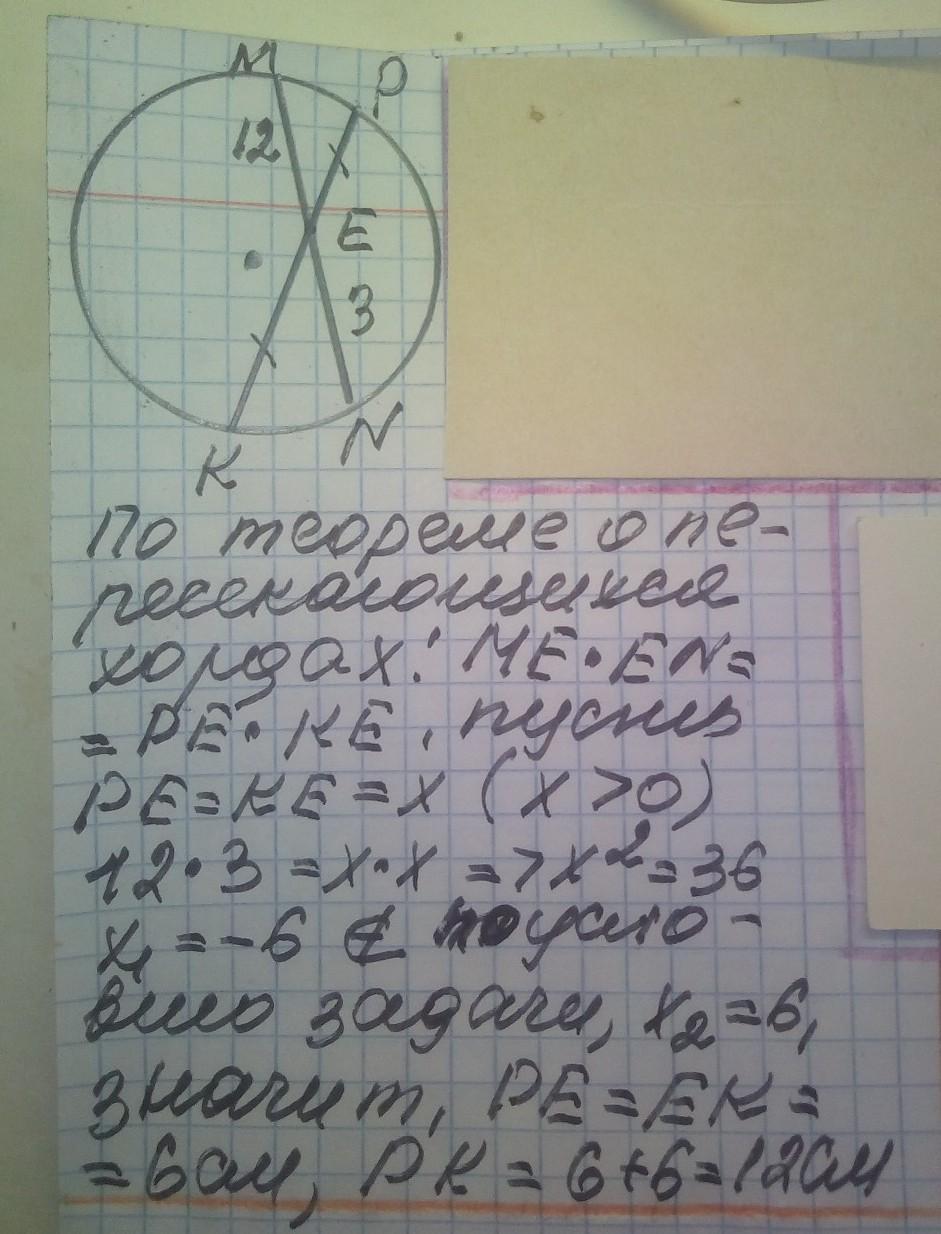 M
P
12
E
3
N
K
По теореме о пе-
ресекающихся
хордах: ME·EN=
= PE·KE, пусть
PE=KE=x (x>0)
12·3 =x·x =>x²=36
x₁ =-6 ∉ по усло-
вию задачи, x₂=6,
значит, PE=EK=
=6см, PK = 6+6=12см